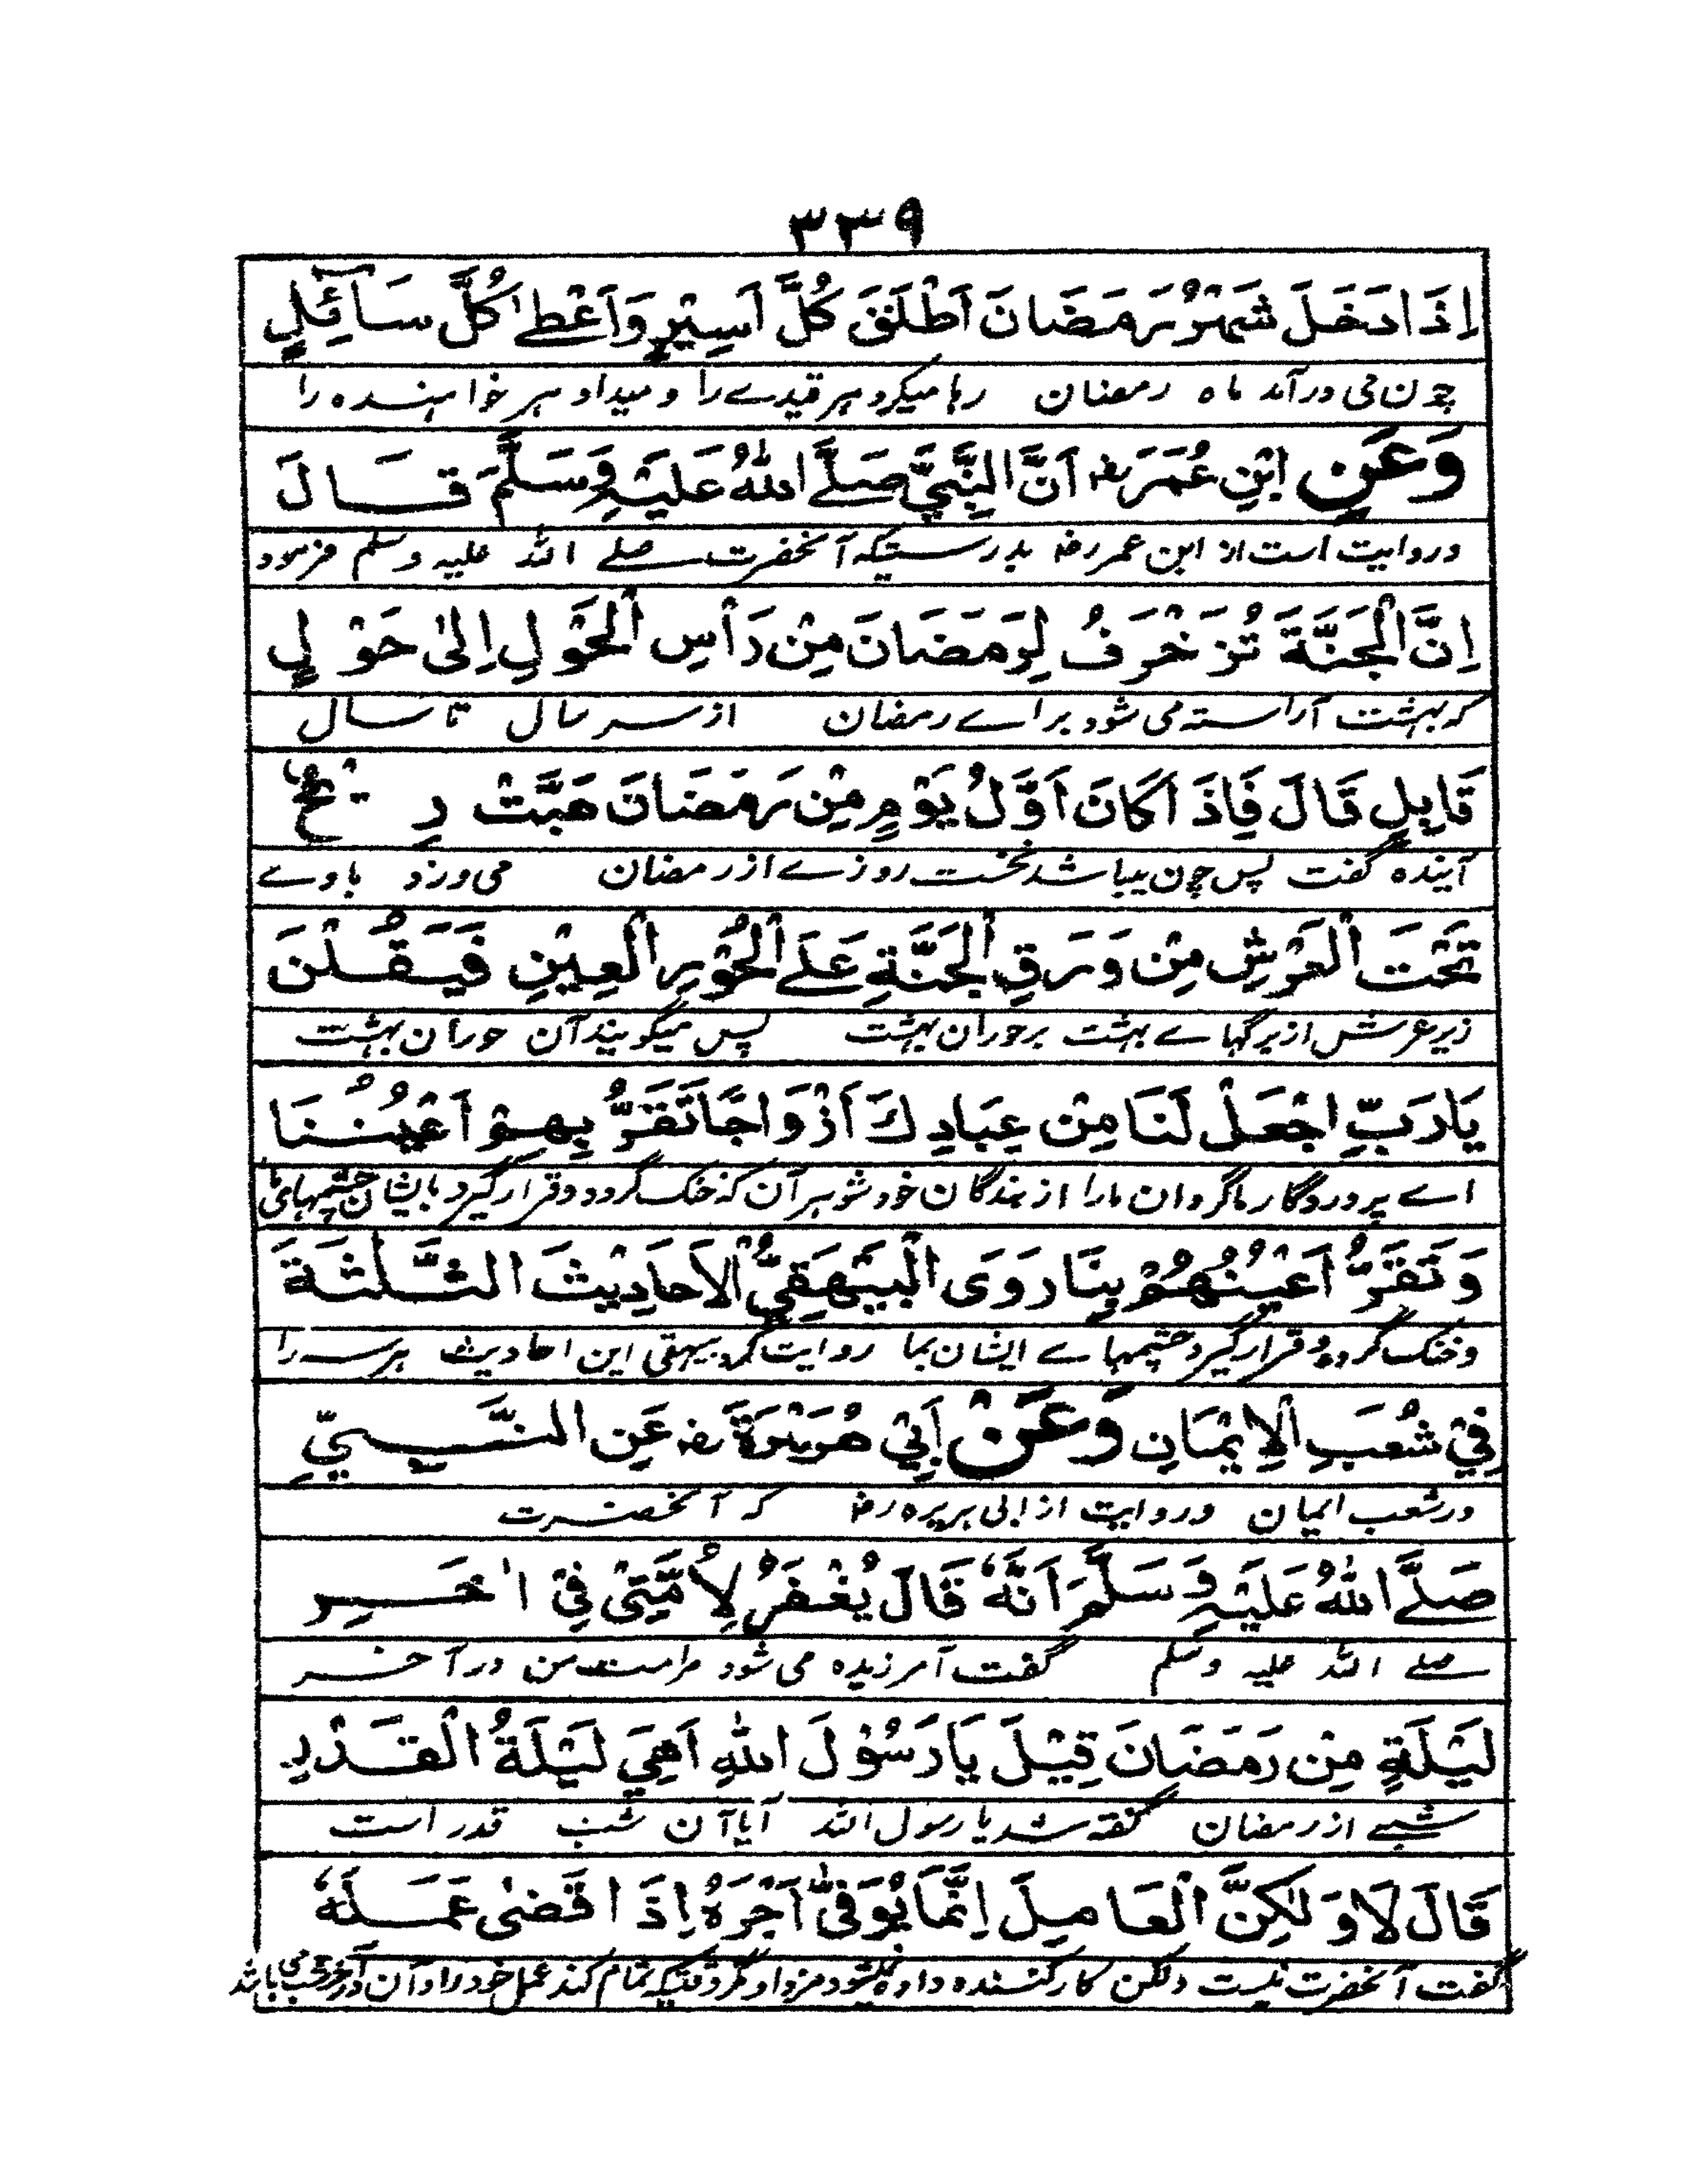 ۳۳۹
اِذَا دَخَلَ شَهْرُ رَمَضَانَ اَطْلَقَ كُلَّ اَسِيْرٍ وَاَعْطٰے كُلَّ سَآئِلٍ
چون می در آمد ماه رمضان رہا میکرد ہر قیدے را و میداد ہر خواہندہ را
وَعَنِ ابْنِ عُمَرَ رضہ اَنَّ النَّبِيَّ صَلَّے اللهُ عَلَيْهِ وَسَلَّمَ قَالَ
و روایت است از ابن عمر رضہ بدرستیکہ آنحضرت صلے اللہ علیہ وسلم فرمود
اِنَّ الْجَنَّةَ تُزَخْرَفُ لِرَمَضَانَ مِنْ رَأْسِ الْحَوْلِ اِلٰى حَوْلٍ
کہ بہشت آراستہ می شود براے رمضان از سر سال تا سال
قَابِلٍ قَالَ فَاِذَا كَانَ اَوَّلُ يَوْمٍ مِنْ رَمَضَانَ هَبَّتْ رِيْحٌ
آیندہ گفت پس چون بیاشد نخست روزے از رمضان می وزد بادے
تَحْتَ الْعَرْشِ مِنْ وَرَقِ الْجَنَّةِ عَلَے الْحُوْرِ الْعِيْنِ فَيَقُلْنَ
زیر عرش از برگہاے بہشت بر حوران بہشت پس میگویند آن حوران بہشت
يَا رَبِّ اجْعَلْ لَنَا مِنْ عِبَادِكَ اَزْوَاجًا تَقَرُّ بِهِمْ اَعْيُنُنَا
اے پروردگار ما گردان مارا از بندگان خود شوہر آن کہ خنک گردد و قرار گیرد بایشان چشمہای ما
وَتَقَرُّ اَعْيُنُهُمْ بِنَا رَوَى الْبَيْهَقِيُّ الْاَحَادِيْثَ الثَّلٰثَةَ
و خنک گردد و قرار گیرد چشمہاے ایشان بما روایت کرد بیہقی این احادیث ہر سہ را
فِيْ شُعَبِ الْاِيْمَانِ وَعَنْ اَبِيْ هُرَيْرَةَ رضہ عَنِ النَّبِيِّ
در شعب ایمان و روایت از ابی ہریرہ رضہ کہ آنحضرت
صَلَّے اللهُ عَلَيْهِ وَسَلَّمَ اَنَّهٗ قَالَ يُغْفَرُ لِاُمَّتِيْ فِيْ اٰخِرِ
صلے اللہ علیہ وسلم گفت آمرزیدہ می شود مر امت من در آخر
لَيْلَةٍ مِنْ رَمَضَانَ قِيْلَ يَا رَسُوْلَ اللهِ اَهِيَ لَيْلَةُ الْقَدْرِ
شبے از رمضان گفتہ شد یا رسول اللہ آیا آن شب قدر است
قَالَ لَا وَلٰكِنَّ الْعَامِلَ اِنَّمَا يُوَفّٰى اَجْرَهٗ اِذَا قَضٰى عَمَلَهٗ
گفت آنحضرت نیست ولکن کار کنندہ دادہ میشود مزد او مگر وقتیکہ تمام کند عمل خود را و آن در آخر شب می باشد